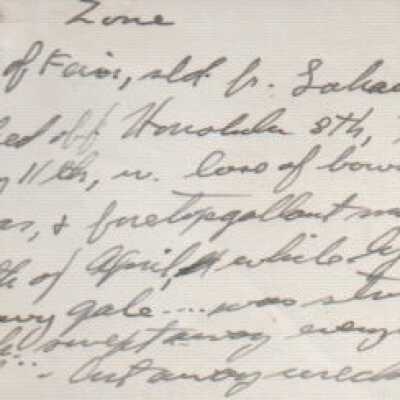 Zone
of Fair, sld. fr. Lahai
ed off Honolulu 8th,
11th, w. loss of bow
as, & foretopgallant ma
th of April, while ly
avy gale .... was stru
swept away every
... Cut away wreck